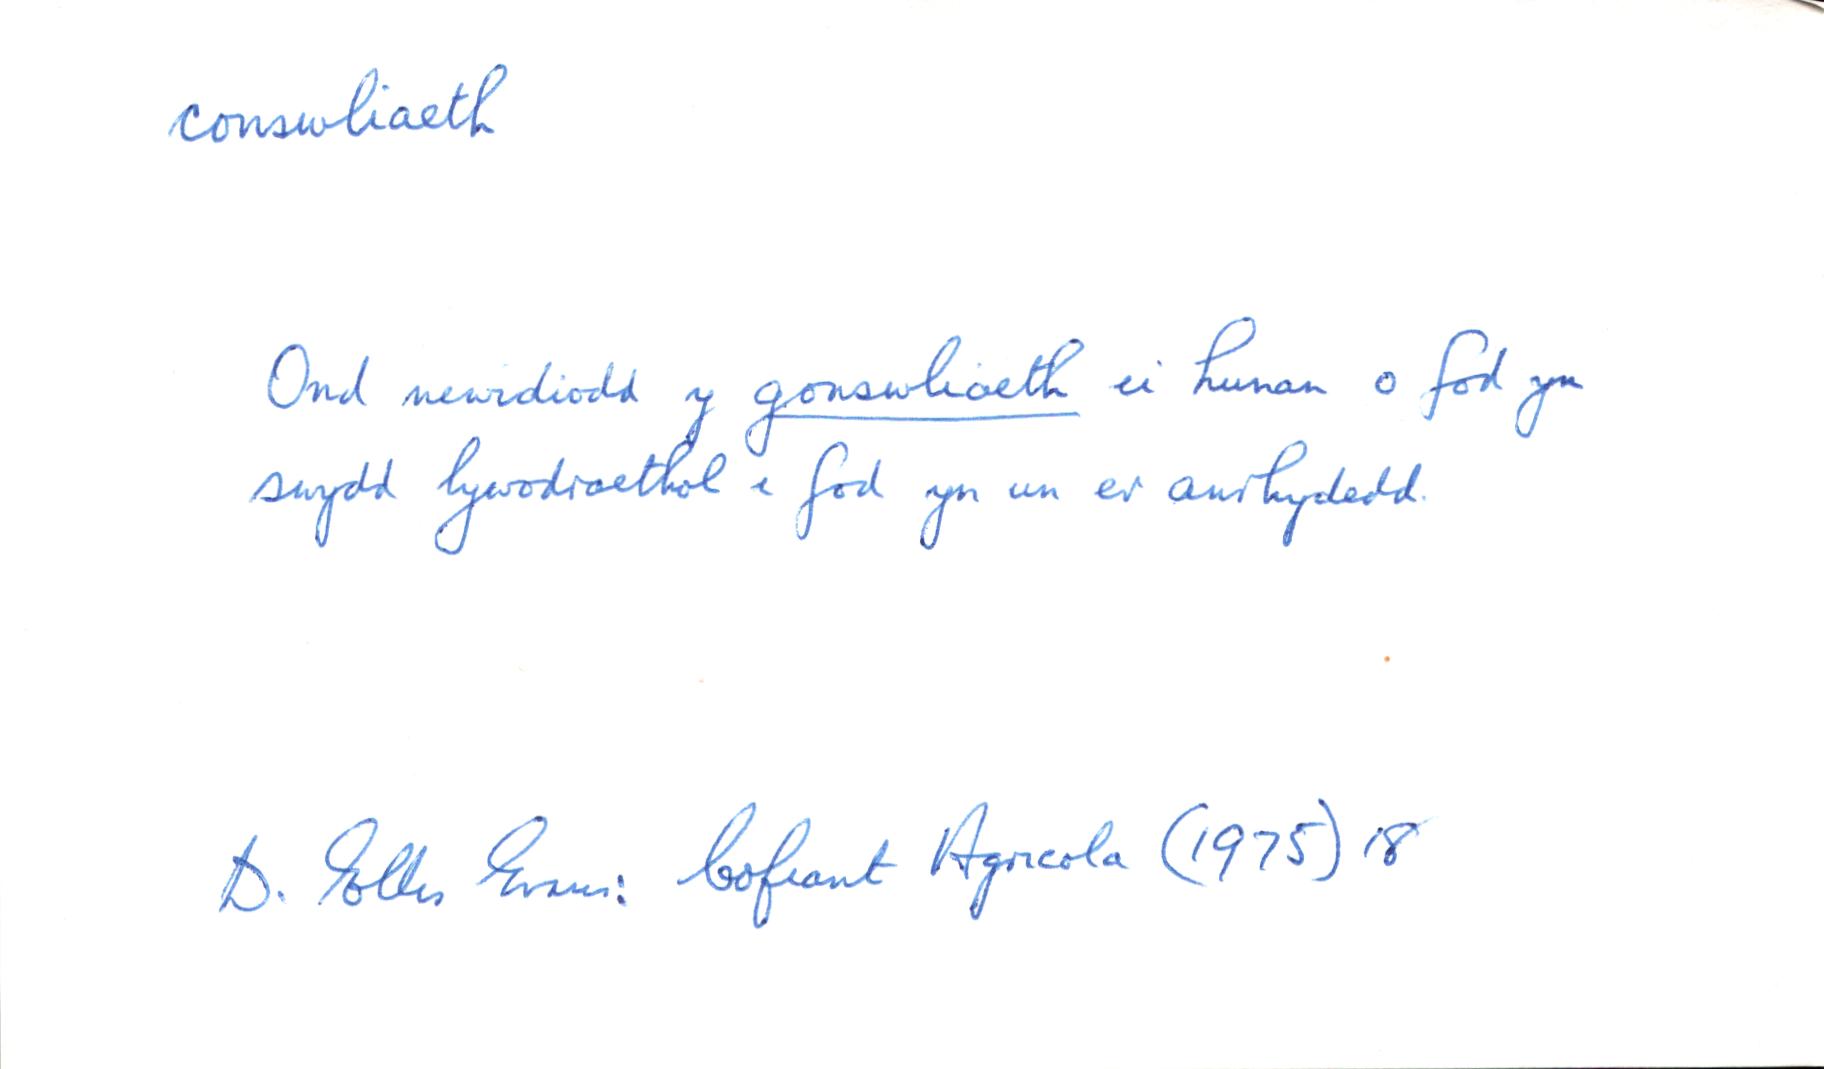 conswliaeth
Ond newidiodd y gonswliaeth ei hunan o fod yn
swydd lywodraethol i fod yn un er anrhydedd.
D. Ellis Evans: Cofiant Agricola (1975) 18